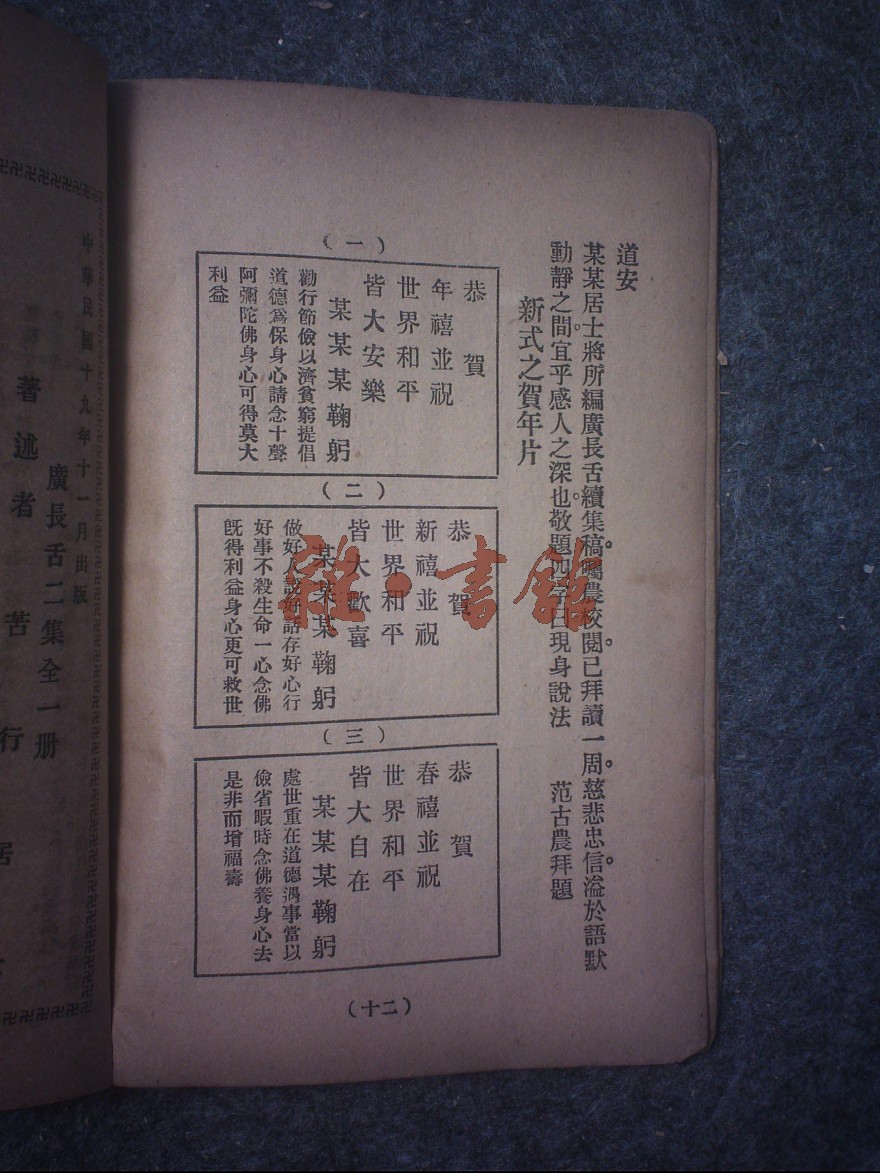 道安
某某居士將所編廣長舌續集稿。囑農校閱。已拜讀一周。慈悲忠信。溢於語默
動靜之間。宜乎感人之深也。敬題四字曰現身說法　范古農拜題
新式之賀年片
（一）
恭賀
年禧並祝
世界和平
皆大安樂
某某某鞠躬
勸行節儉以濟貧窮提倡
道德爲保身心請念十聲
阿彌陀佛身心可得莫大
利益
（二）
恭賀
新禧並祝
世界和平
皆大歡喜
某某某鞠躬
做好人說好話存好心行
好事不殺生命一心念佛
旣得利益身心更可救世
（三）
恭賀
春禧並祝
世界和平
皆大自在
某某某鞠躬
處世重在道德遇事當以
儉省暇時念佛養身心去
是非而增福壽
（十二）
中華民國十九年十一月出版
廣長舌二集全一册
著述者　苦行居
雜·書館